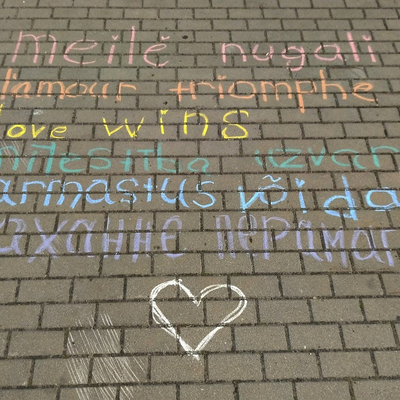 meilė nugali
l'amour triomphe
love wins
mīlestība uzvar
armastus võida
аханне перамаг